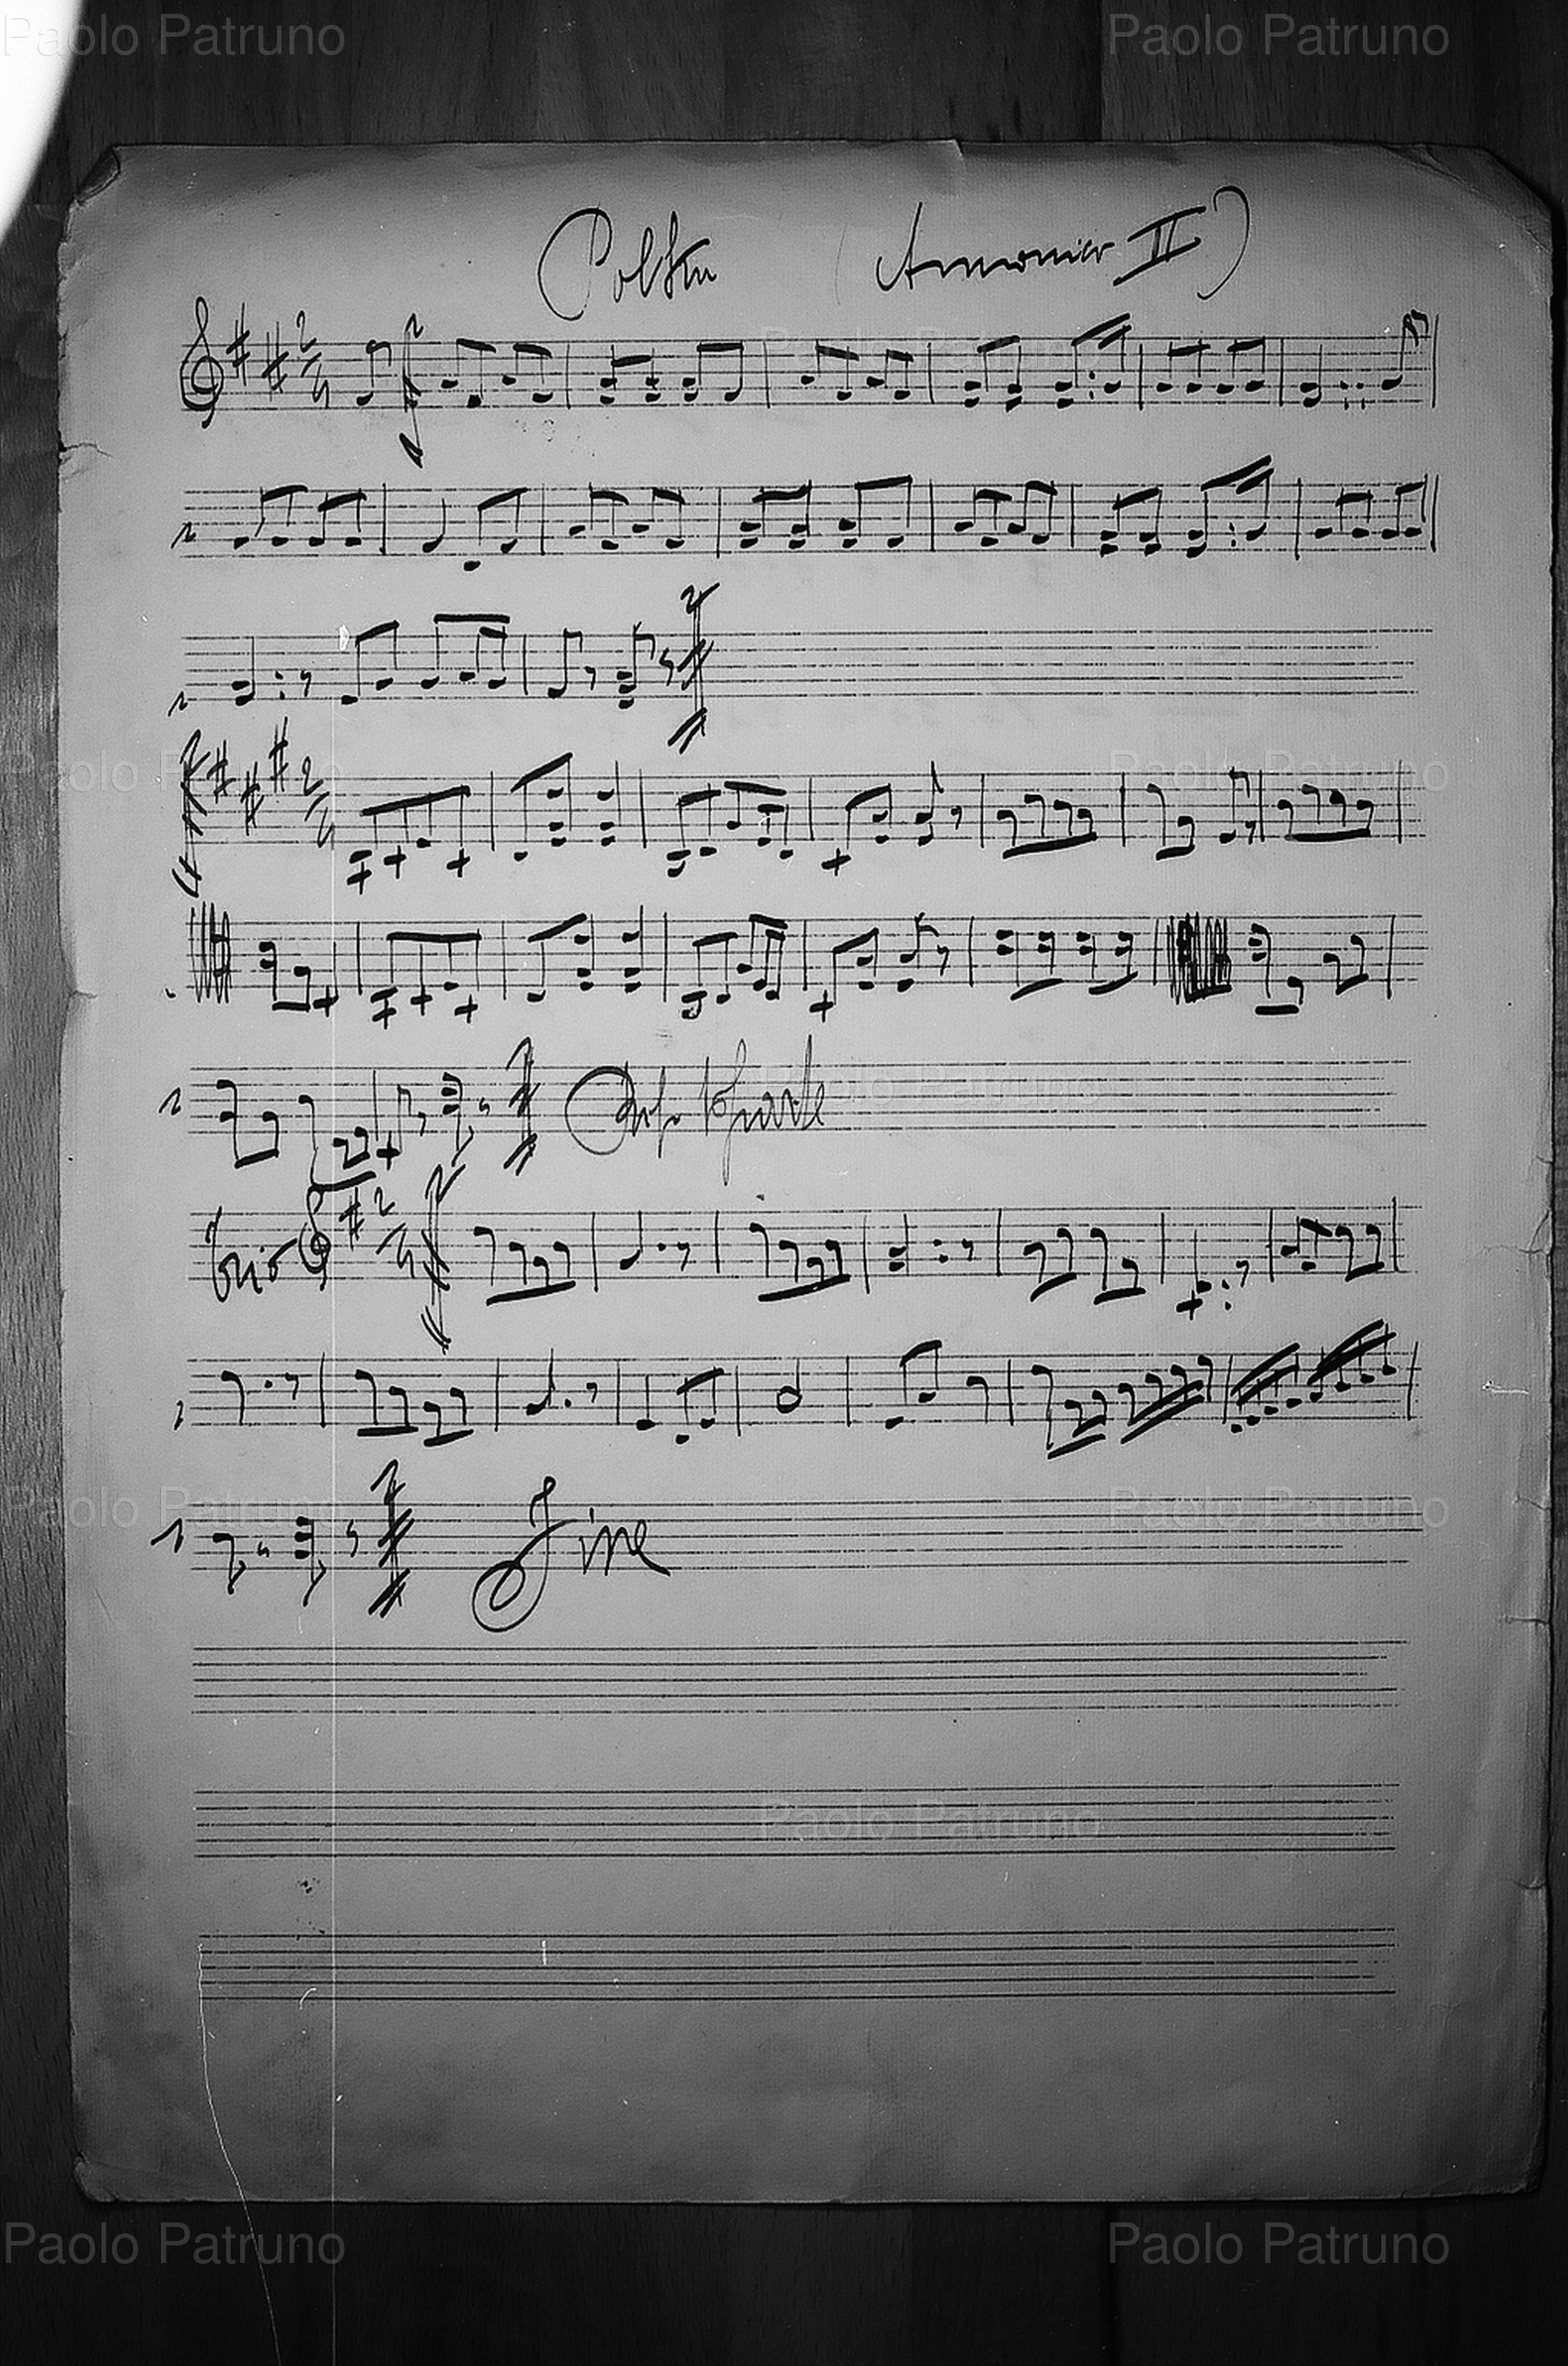 Paolo Patruno Paolo Patruno
Polka (Armonica II)
Paolo Patruno
Paolo Patruno Paolo Patruno
2
4
Paolo Patruno
Trio 2
4
Paolo Patruno Paolo Patruno
Fine
Paolo Patruno
Paolo Patruno Paolo Patruno